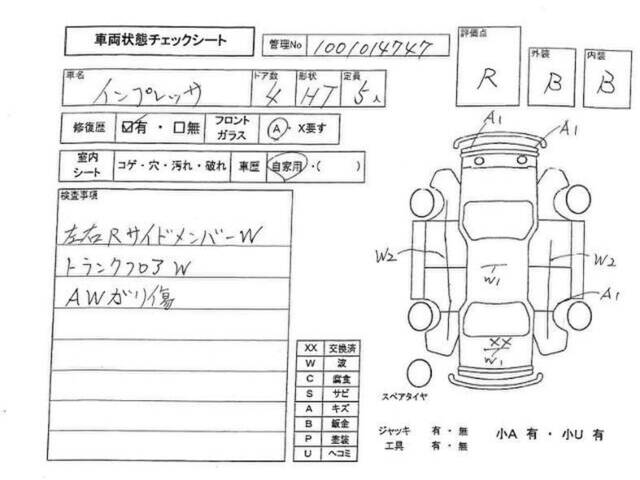 車両状態チェックシート
管理No 1001014747
評価点 R
外装 B
内装 B
車名 インプレッサ
ドア数 4
形状 HT
定員 5人
修復歴 ☑有・☐無
フロントガラス A・X要す
室内シート コゲ・穴・汚れ・破れ
車歴 自家用・( )
検査事項
左右RサイドメンバーW
トランクフロアW
AWガリ傷
A1
A1
W2
W1
W2
A1
XX
W1
スペアタイヤ
XX 交換済
W 波
C 腐食
S サビ
A キズ
B 鈑金
P 塗装
U ヘコミ
ジャッキ 有・無
工具 有・無
小A 有・小U 有